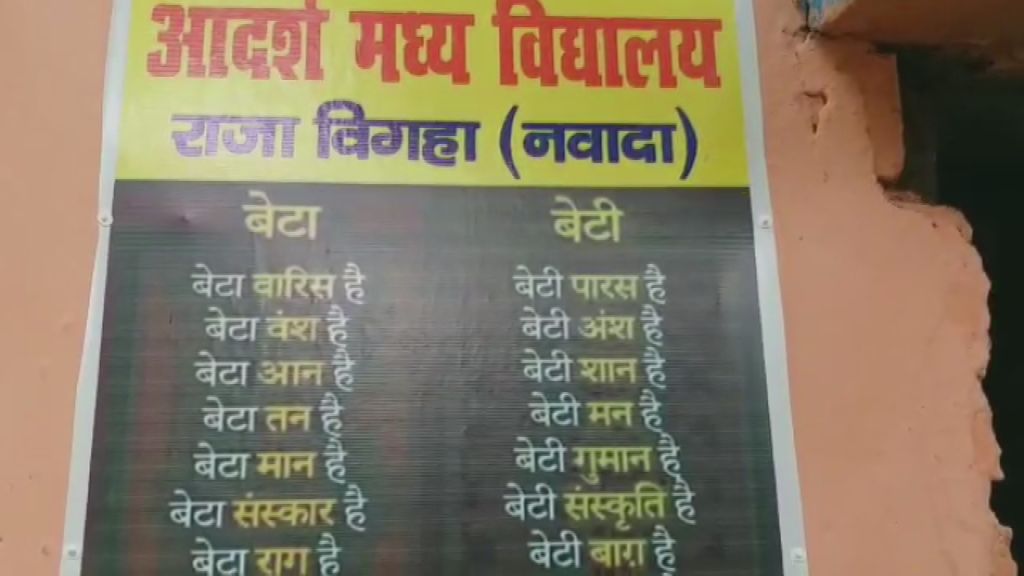 आदर्श मध्य विद्यालय
राजा विगहा (नवादा)
बेटा बेटी
बेटा वारिस है बेटी पारस है
बेटा वंश है बेटी अंश है
बेटा आन है बेटी शान है
बेटा तन है बेटी मन है
बेटा मान है बेटी गुमान है
बेटा संस्कार है बेटी संस्कृति है
बेटा राग है बेटी बाग़ है